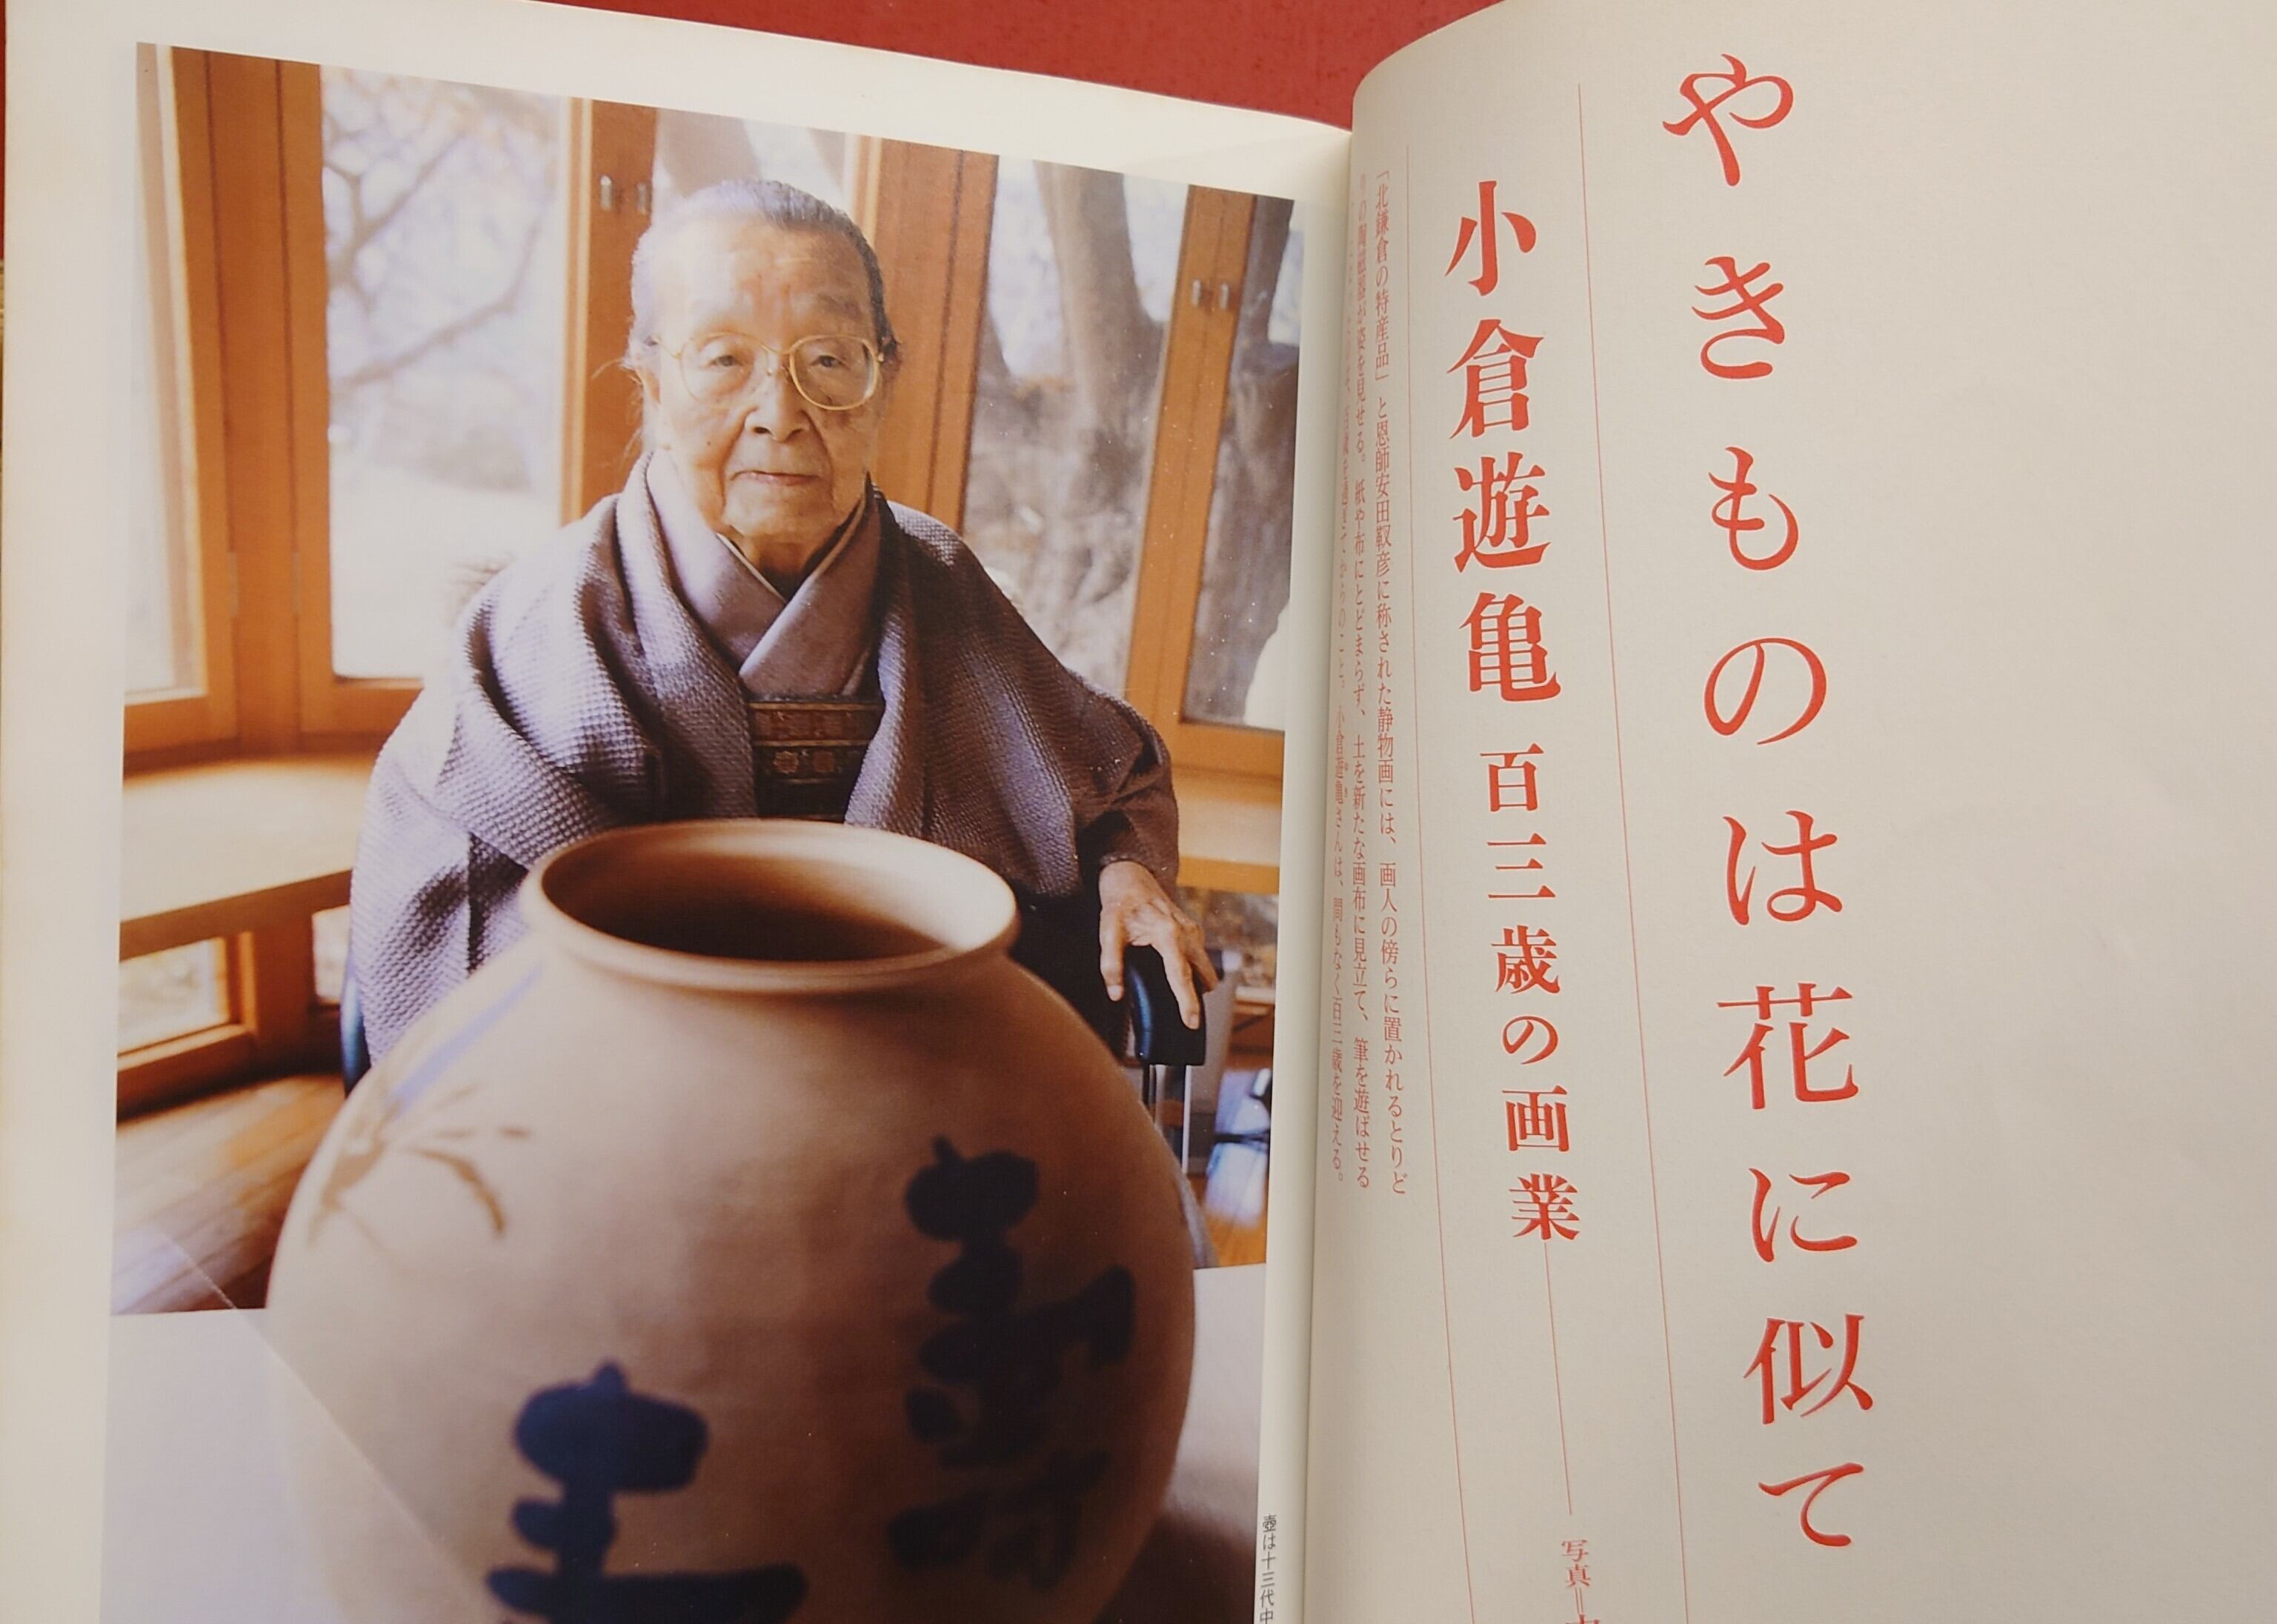 やきものは花に似て
小倉遊亀 百三歳の画業
写真=
「北鎌倉の特産品」と恩師安田靫彦に称された静物画には、画人の傍らに置かれるとりど
りの陶磁器が姿を見せる。紙や布にとどまらず、土を新たな画布に見立て、筆を遊ばせる
百歳を過ぎてからのこと。小倉遊亀さんは、間もなく百三歳を迎える。
壺は十三代中